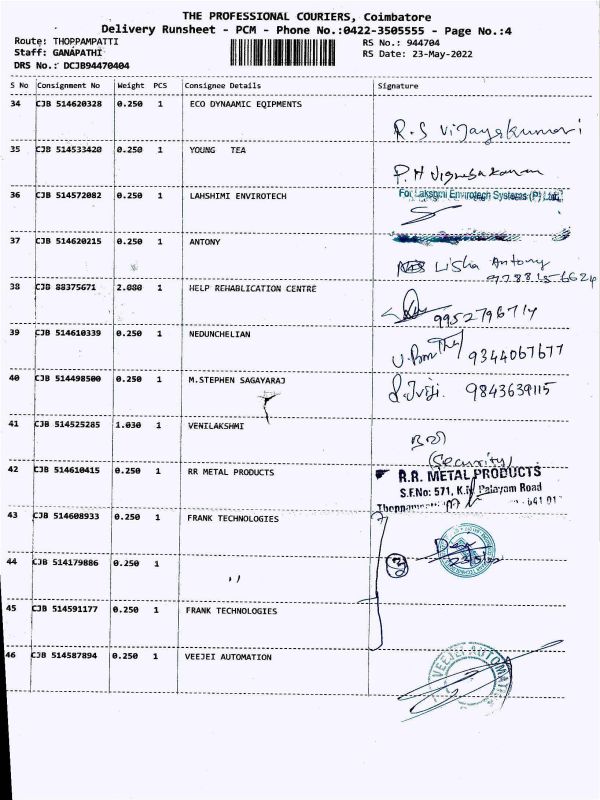 THE PROFESSIONAL COURIERS, Coimbatore
Delivery Runsheet - PCM - Phone No.:0422-3505555 - Page No.:4
Route: THOPPAMPATTI RS No.: 944704
Staff: GANAPATHI RS Date: 23-May-2022
DRS No.: DCJB94470404
S No Consignment No Weight PCS Consignee Details Signature
34 CJB 514620328 0.250 1 ECO DYNAAMIC EQIPMENTS
R.S Vijayakumari
35 CJB 514533420 0.250 1 YOUNG TEA
P.H
36 CJB 514572082 0.250 1 LAHSHIMI ENVIROTECH
For Lakshmi Envirotech Systems (P) Ltd.,
37 CJB 514620215 0.250 1 ANTONY
Lisha Antony
38 CJB 88375671 2.080 1 HELP REHABLICATION CENTRE
9952796714
39 CJB 514610339 0.250 1 NEDUNCHELIAN
9344067677
40 CJB 514498500 0.250 1 M.STEPHEN SAGAYARAJ
9843639115
41 CJB 514525285 1.030 1 VENILAKSHMI
(Security)
42 CJB 514610415 0.250 1 RR METAL PRODUCTS
R.R. METAL PRODUCTS
S.F.No: 571, K.N. Palayam Road
43 CJB 514608933 0.250 1 FRANK TECHNOLOGIES
3
44 CJB 514179886 0.250 1
,,
45 CJB 514591177 0.250 1 FRANK TECHNOLOGIES
46 CJB 514587894 0.250 1 VEEJEI AUTOMATION
VEEJEI AUTOMATION